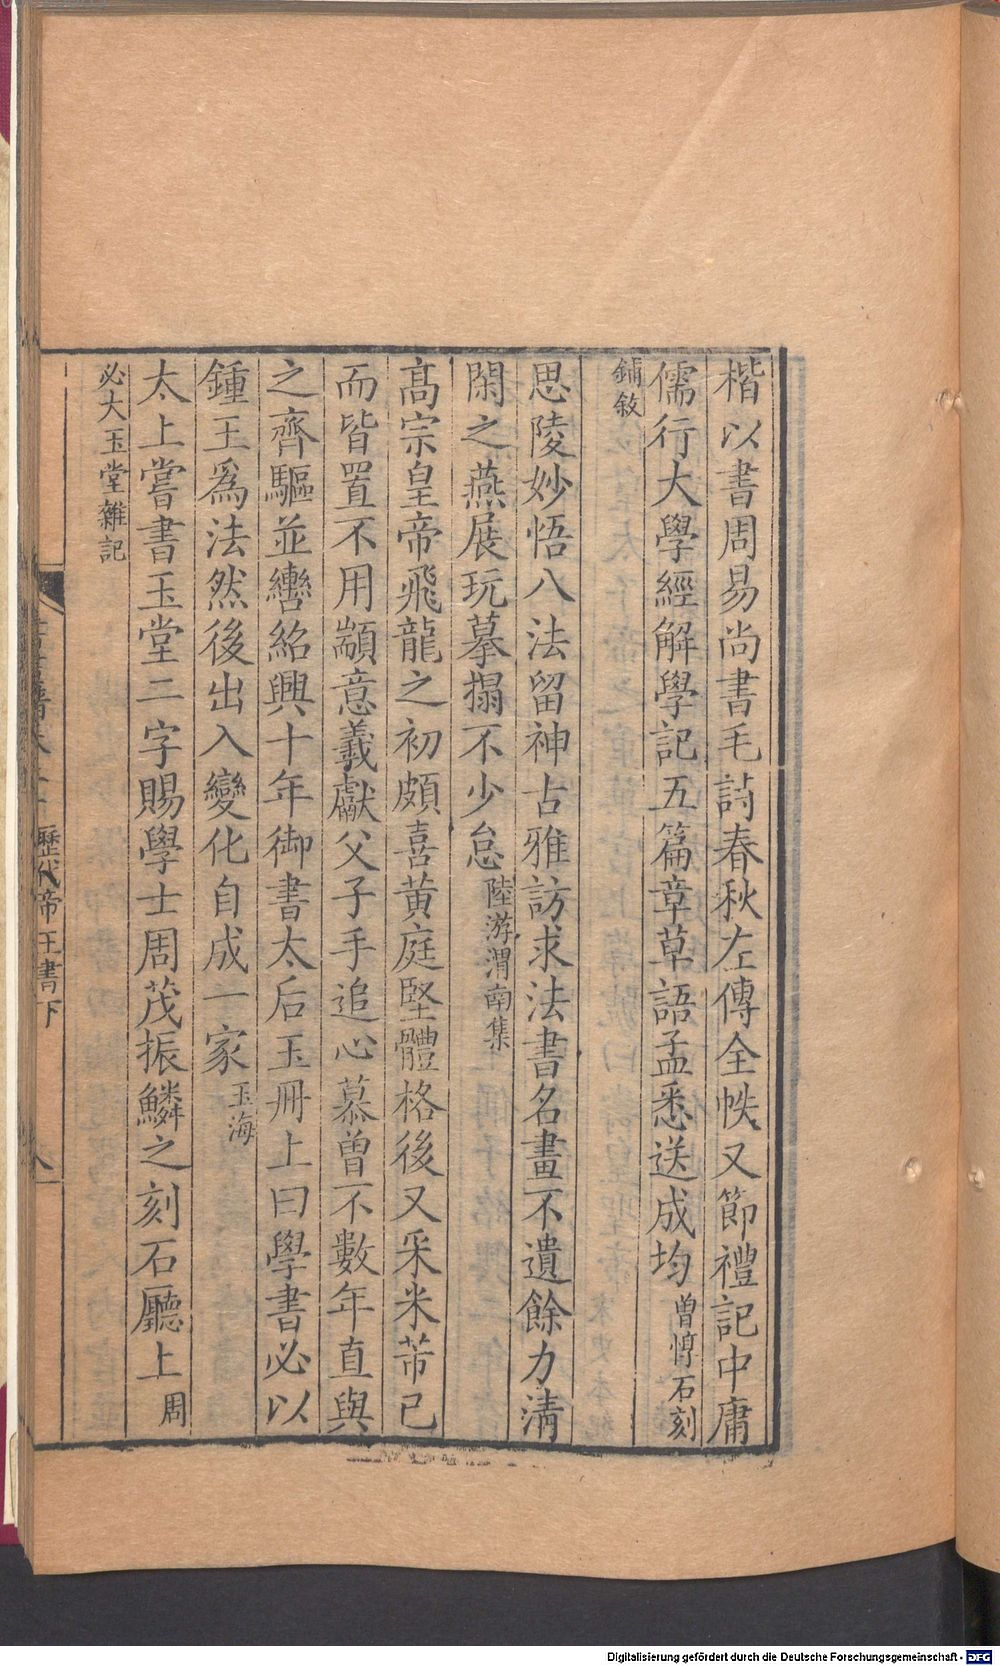 楷以書周易尚書毛詩春秋左傳全帙又節禮記中庸
儒行大學經解學記五篇章草語孟悉送成均曾惇石刻
鋪敘
思陵妙悟八法留神古雅訪求法書名畫不遺餘力清
閑之燕展玩摹搨不少怠陸游渭南集
髙宗皇帝飛龍之初頗喜黄庭堅體格後又采米芾已
而皆置不用顓意羲獻父子手追心慕曾不數年直與
之齊驅並轡紹興十年御書太后玉冊上曰學書必以
鍾王爲法然後出入變化自成一家玉海
太上嘗書玉堂二字賜學士周茂振鱗之刻石廳上周
必大玉堂雜記
歷代帝王書下
Digitalisierung gefördert durch die Deutsche Forschungsgemeinschaft - DFG